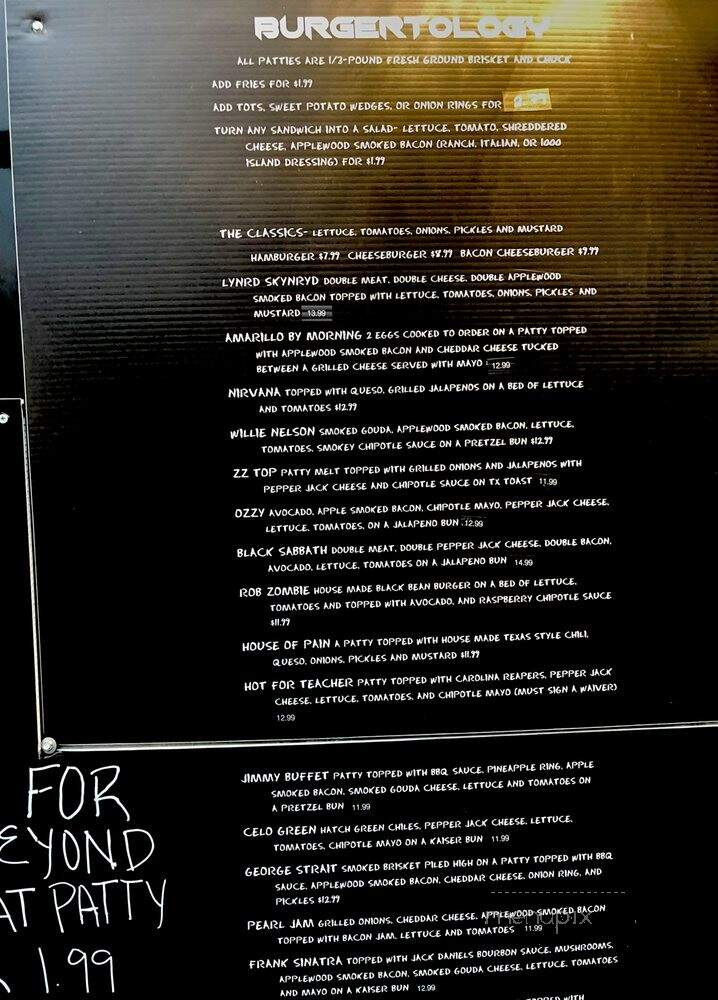 BURGERTOLOGY
ALL PATTIES ARE 1/3-POUND FRESH GROUND BRISKET AND CHUCK
ADD FRIES FOR $1.99
ADD TOTS, SWEET POTATO WEDGES, OR ONION RINGS FOR
TURN ANY SANDWICH INTO A SALAD- LETTUCE, TOMATO, SHREDDERED
CHEESE, APPLEWOOD SMOKED BACON (RANCH, ITALIAN, OR 1000
ISLAND DRESSING) FOR $1.99
THE CLASSICS- LETTUCE, TOMATOES, ONIONS, PICKLES AND MUSTARD
HAMBURGER $7.99 CHEESEBURGER $8.99 BACON CHEESEBURGER $9.99
LYNRD SKYNRYD DOUBLE MEAT, DOUBLE CHEESE, DOUBLE APPLEWOOD
SMOKED BACON TOPPED WITH LETTUCE, TOMATOES, ONIONS, PICKLES AND
MUSTARD 13.99
AMARILLO BY MORNING 2 EGGS COOKED TO ORDER ON A PATTY TOPPED
WITH APPLEWOOD SMOKED BACON AND CHEDDAR CHEESE TUCKED
BETWEEN A GRILLED CHEESE SERVED WITH MAYO 12.99
NIRVANA TOPPED WITH QUESO, GRILLED JALAPENOS ON A BED OF LETTUCE
AND TOMATOES $12.99
WILLIE NELSON SMOKED GOUDA, APPLEWOOD SMOKED BACON, LETTUCE,
TOMATOES, SMOKEY CHIPOTLE SAUCE ON A PRETZEL BUN $12.99
ZZ TOP PATTY MELT TOPPED WITH GRILLED ONIONS AND JALAPENOS WITH
PEPPER JACK CHEESE AND CHIPOTLE SAUCE ON TX TOAST 11.99
OZZY AVOCADO, APPLE SMOKED BACON, CHIPOTLE MAYO, PEPPER JACK CHEESE,
LETTUCE, TOMATOES, ON A JALAPENO BUN 12.99
BLACK SABBATH DOUBLE MEAT, DOUBLE PEPPER JACK CHEESE, DOUBLE BACON,
AVOCADO, LETTUCE, TOMATOES ON A JALAPENO BUN 14.99
ROB ZOMBIE HOUSE MADE BLACK BEAN BURGER ON A BED OF LETTUCE,
TOMATOES AND TOPPED WITH AVOCADO, AND RASPBERRY CHIPOTLE SAUCE
$11.99
HOUSE OF PAIN A PATTY TOPPED WITH HOUSE MADE TEXAS STYLE CHILI,
QUESO, ONIONS, PICKLES AND MUSTARD $11.99
HOT FOR TEACHER PATTY TOPPED WITH CAROLINA REAPERS, PEPPER JACK
CHEESE, LETTUCE, TOMATOES, AND CHIPOTLE MAYO (MUST SIGN A WAIVER)
12.99
JIMMY BUFFET PATTY TOPPED WITH BBQ SAUCE, PINEAPPLE RING, APPLE
SMOKED BACON, SMOKED GOUDA CHEESE, LETTUCE AND TOMATOES ON
A PRETZEL BUN 11.99
CELO GREEN HATCH GREEN CHILES, PEPPER JACK CHEESE, LETTUCE,
TOMATOES, CHIPOTLE MAYO ON A KAISER BUN 11.99
GEORGE STRAIT SMOKED BRISKET PILED HIGH ON A PATTY TOPPED WITH BBQ
SAUCE, APPLEWOOD SMOKED BACON, CHEDDAR CHEESE, ONION RING, AND
PICKLES $12.99
PEARL JAM GRILLED ONIONS, CHEDDAR CHEESE, APPLEWOOD SMOKED BACON
TOPPED WITH BACON JAM, LETTUCE AND TOMATOES 11.99
FRANK SINATRA TOPPED WITH JACK DANIELS BOURBON SAUCE, MUSHROOMS,
APPLEWOOD SMOKED BACON, SMOKED GOUDA CHEESE, LETTUCE, TOMATOES
AND MAYO ON A KAISER BUN 12.99
TOPPED WITH
FOR
EYOND
AT PATTY
1.99
menupix